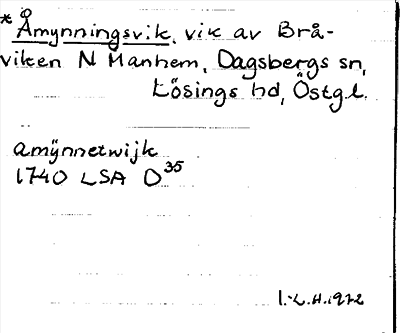 * Åmynningsvik, vik av Brå-
viken N Manhem, Dagsbergs sn,
Lösings hd, Östgl.
amÿnnetwijk
1740 LSA D 35
I.-L.H.1972